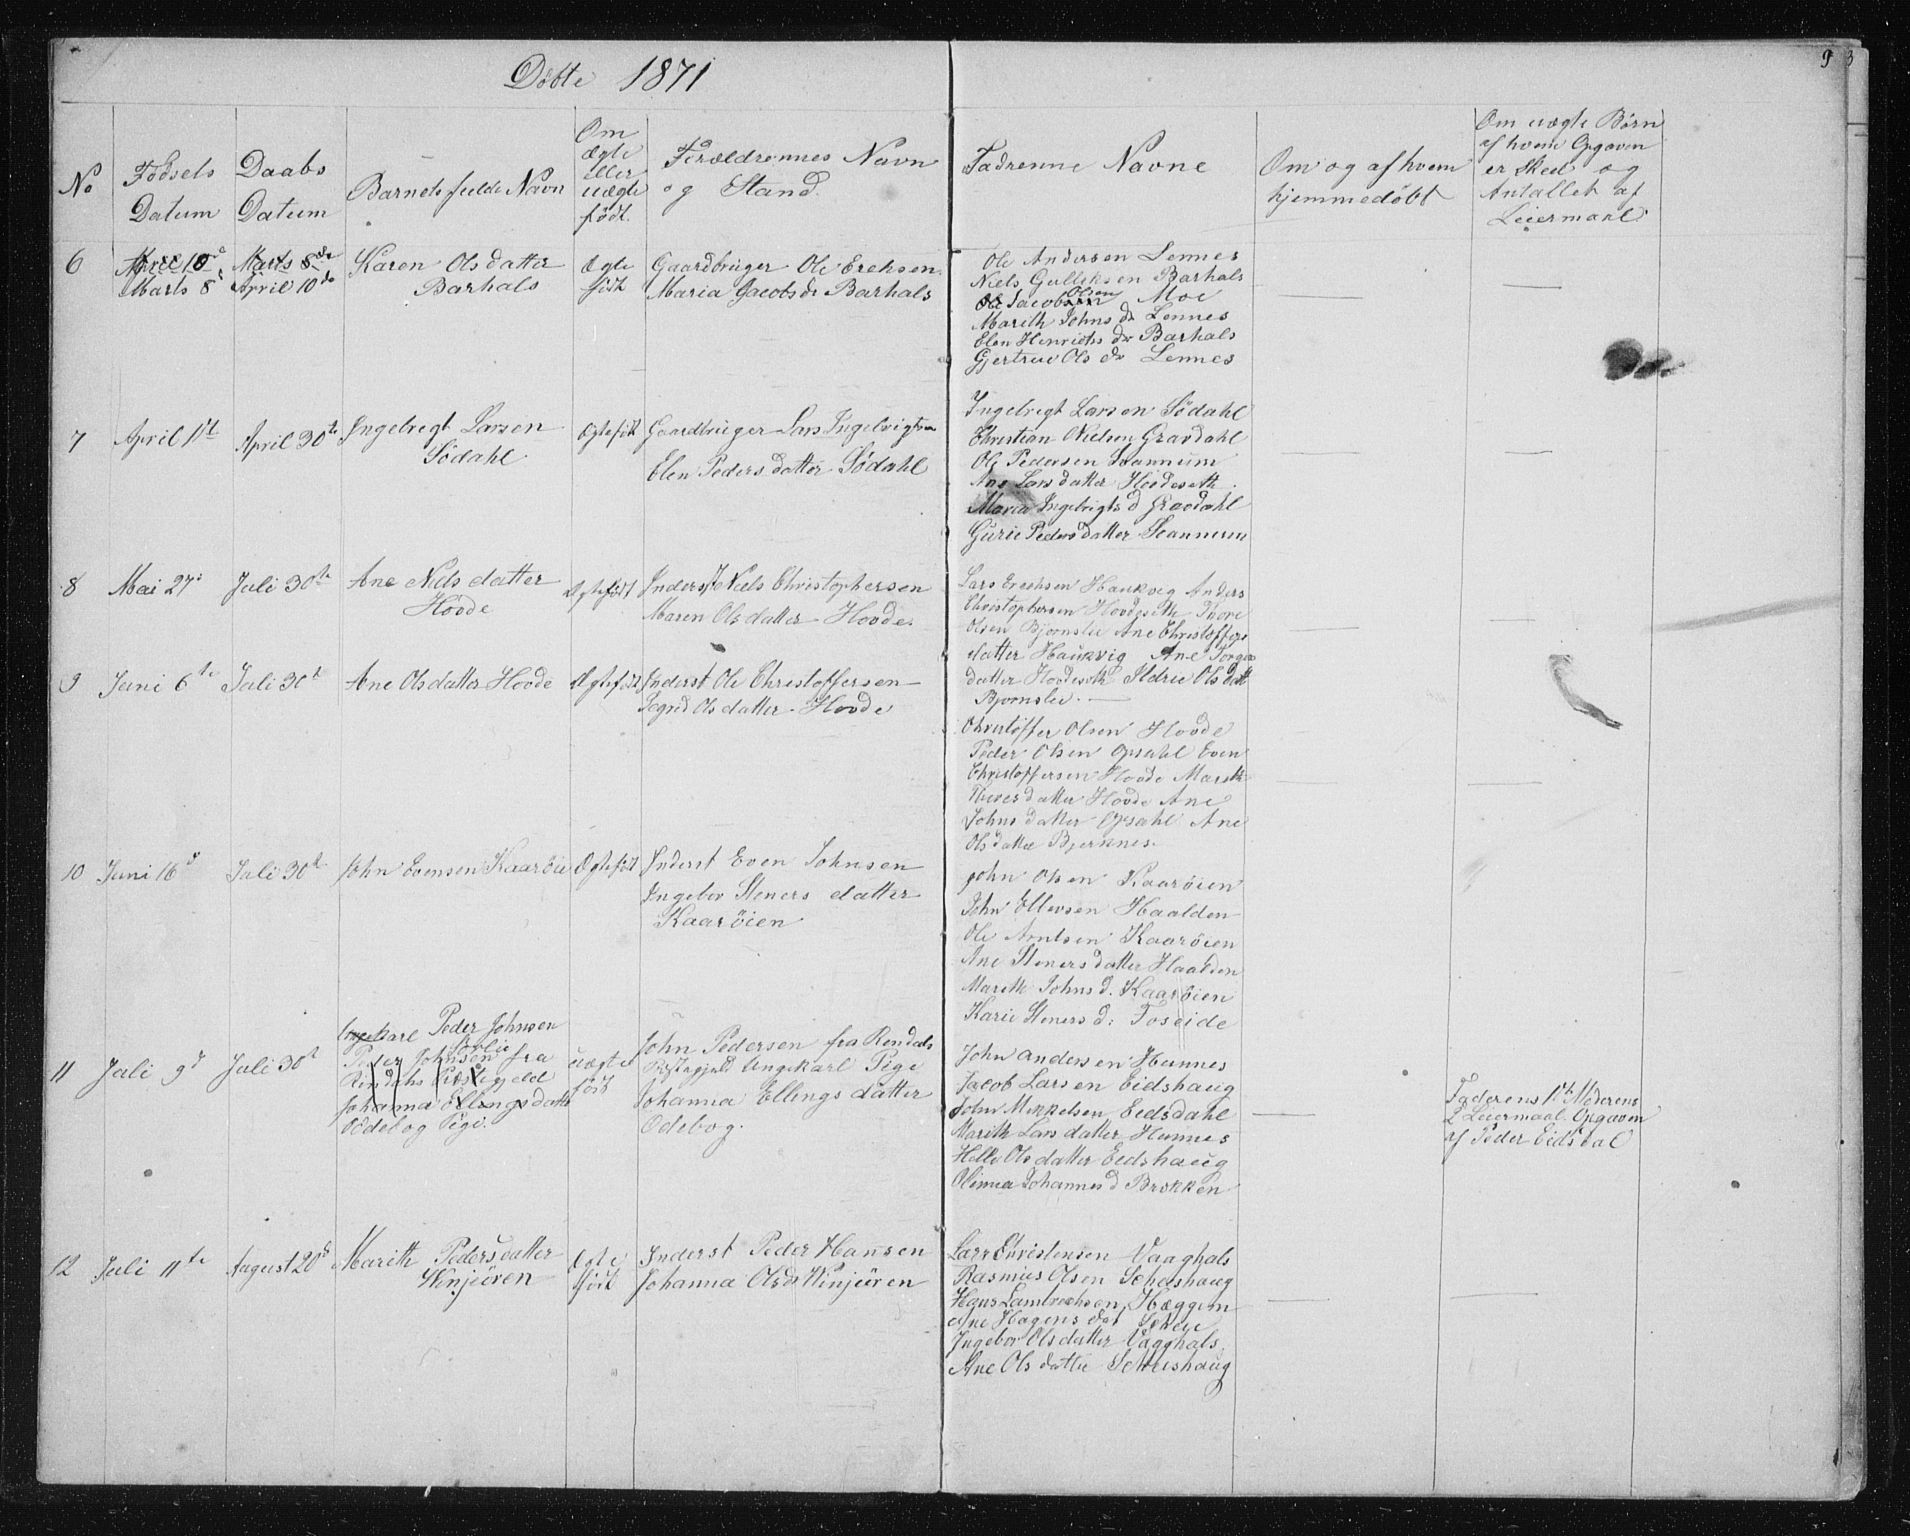 Döbte 1871
9
No
Födsels Datum
Daabs Datum
Barnets fulde Navn
Om ægte eller uægte født.
Forældrenes Navn og Stand.
Fadrenne Navne
Om og af hvem hjemmedöbt
Om uægte Børn af hvem Opgaven er Sked og Antallet af Leiermaal
6
April 10d
Marts 8d
Marts 8de
April 10de
Karen Olsdatter
Barhals
Ægte
född
Gaardbruger Ole Ereksen
Maria Jacobs dr Barhals
Ole Andersen Lennes
Niels Gulliksen Barhals
Ole Jacobsen Olsen Moe
Marith Johns dr Lennes
Elen Henrichs dr Barhals
Gjertrue Ols dr Lennes
7
April 11t
April 30te
Ingebregt Larsen
Södahl
Ægtefödt
Gaardbruger Lars Ingebrigtsen
Elen Peders datter Södahl
Ingebregt Larsen Södahl
Christian Nielsen Gravdahl
Ole Pedersen Scannum
Ane Lars datter Hovdeseth
Maria Ingebrigts d Gravdahl
Gurie Peders datter Scannum
8
Mai 27
Juli 30te
Ane Nels datter
Hovde
Ægtefödt
Inderst Niels Christophersen
Maren Olsdatter Hovde
Lars Ereksen Haukvig Anders
Christophersen Hovdeseth Thore
Olsen Bjørnslie Ane Christoffers
datter Haukvig Ane Torges
datter Hovdeseth Ildrie Olsdatt
Bjornslie
9
Juni 6te
Juli 30t
Ane Olsdatter Hovde
Ægtefödt
Inderst Ole Christoffersen
Segrid Olsdatter Hovde
Christoffer Olsen Hovde
Peder Olsen Opsahl Even
Christoffersen Hovde Marith
Thores datter Hovde Ane
Johns datter Opsahl Ane
Olsdatter Bjerknes
10
Juni 16d
Juli 30t
John Evensen Kaaröie
Ægtefödt
Inderst Even Johnsen
Ingebor Steners datter
Kaaröien
John Olsen Kaaröien
John Ellevsen Haalden
Ole Arntsen Kaaröien
Ane Steners datter Haalden
Marith Johns d. Kaaröien
Karie Steners d: Foseide
11
Juli 9d
Juli 30t
Ungekarl Peder Johnsen
Peder Johnsen fra
Rindahs Præstegield
Johanna Ellings datter
Odebog Pige.
uægte
födt
John Pedersen fra Rendals
Præstegjeld Ungekarl Pige
Johanna Ellings datter
Odebog.
John Andersen Hunnes
Jacob Larsen Eidshaug
John Mikkelsen Eidsdahl
Marith Larsdatter Hunnes
Helle Olsdatter Eidshaug
Olinna Johannes d Brokken
Faderens 1te Moderens
2 Leiermaal Opgaven
af Peder Eidsdal
12
Juli 11te
August 20d
Marith Pedersdatter
Winjüren
Ægte
född
Inderst Peder Hansen
Johanna Olsdr Winjüren
Lars Christensen Vaaghals
Rasmus Olsen Scheshaug
Hans Lambrechsen Hæggem
Ane Hagens datr Scheie
Ingebor Olsdatter Vaaghals
Ane Ols datter Scheishaug